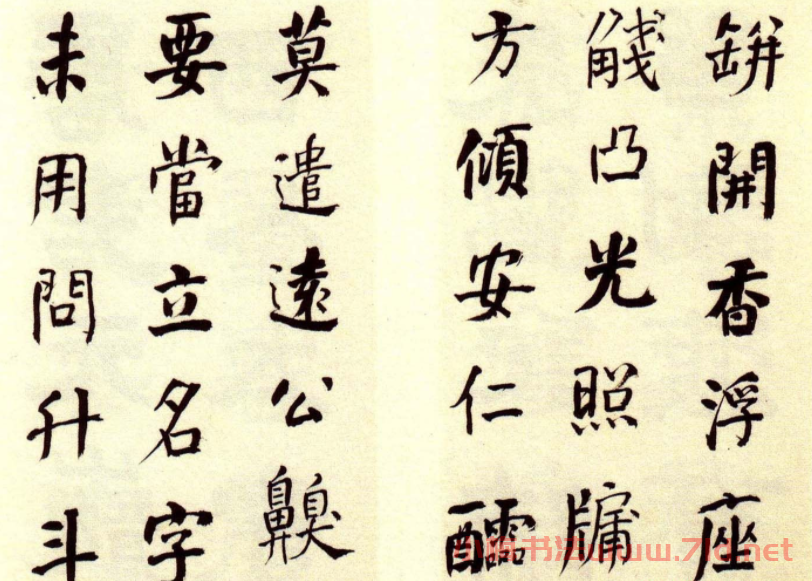 缾開香浮座
凸光照牖
方傾安仁醽
莫遣遠公齅
要當立名字
未用問升斗
书法www.7ld.net